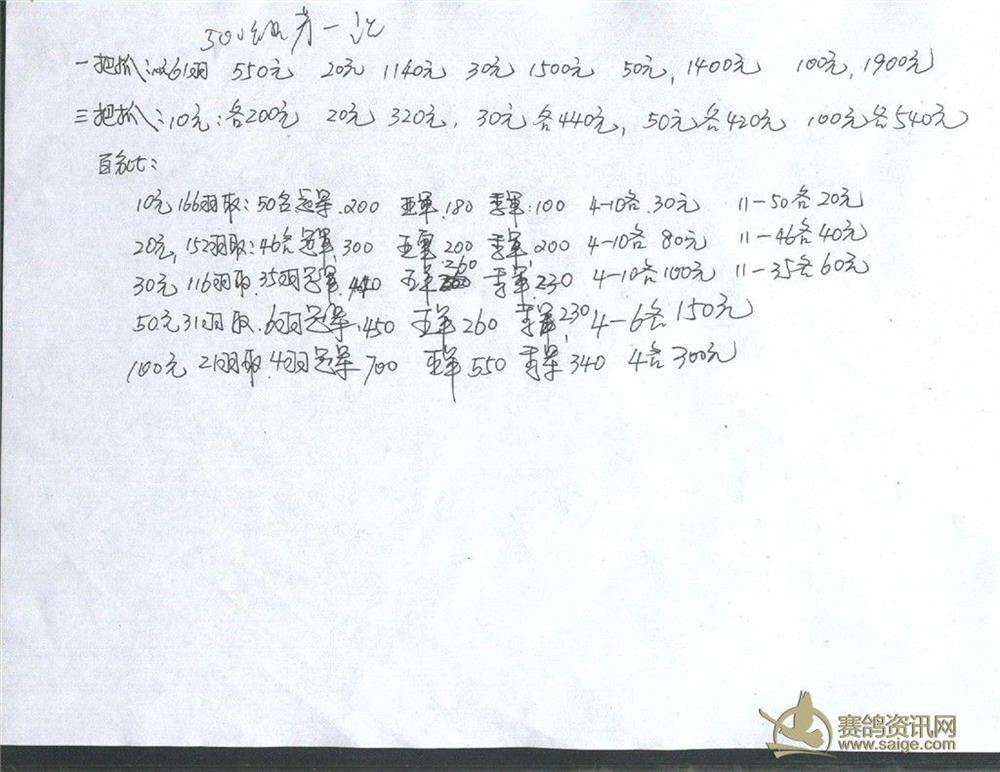 500级第一次
一把抓:收61羽 550元 20元 1140元 30元 1500元 50元,1400元 100元,1900元
三把抓:10元:各200元 20元 320元, 30元各440元, 50元各420元 100元各540元
百分比:
10元166羽取:50名冠军.200 亚军.180 季军:100 4-10名.30元 11-50名.20元
20元,152羽取:46名冠军,300 亚军.200 季军,200 4-10名 80元 11-46名40元
30元116羽取.35羽冠军,440 亚军260 季军,230 4-10名100元 11-35名60元
50元31羽取.6羽冠军,450 亚军260 季军,230 4-6名150元
100元21羽取.4羽冠军700 亚军550 季军,340 4名300元
赛鸽资讯网
www.saige.com